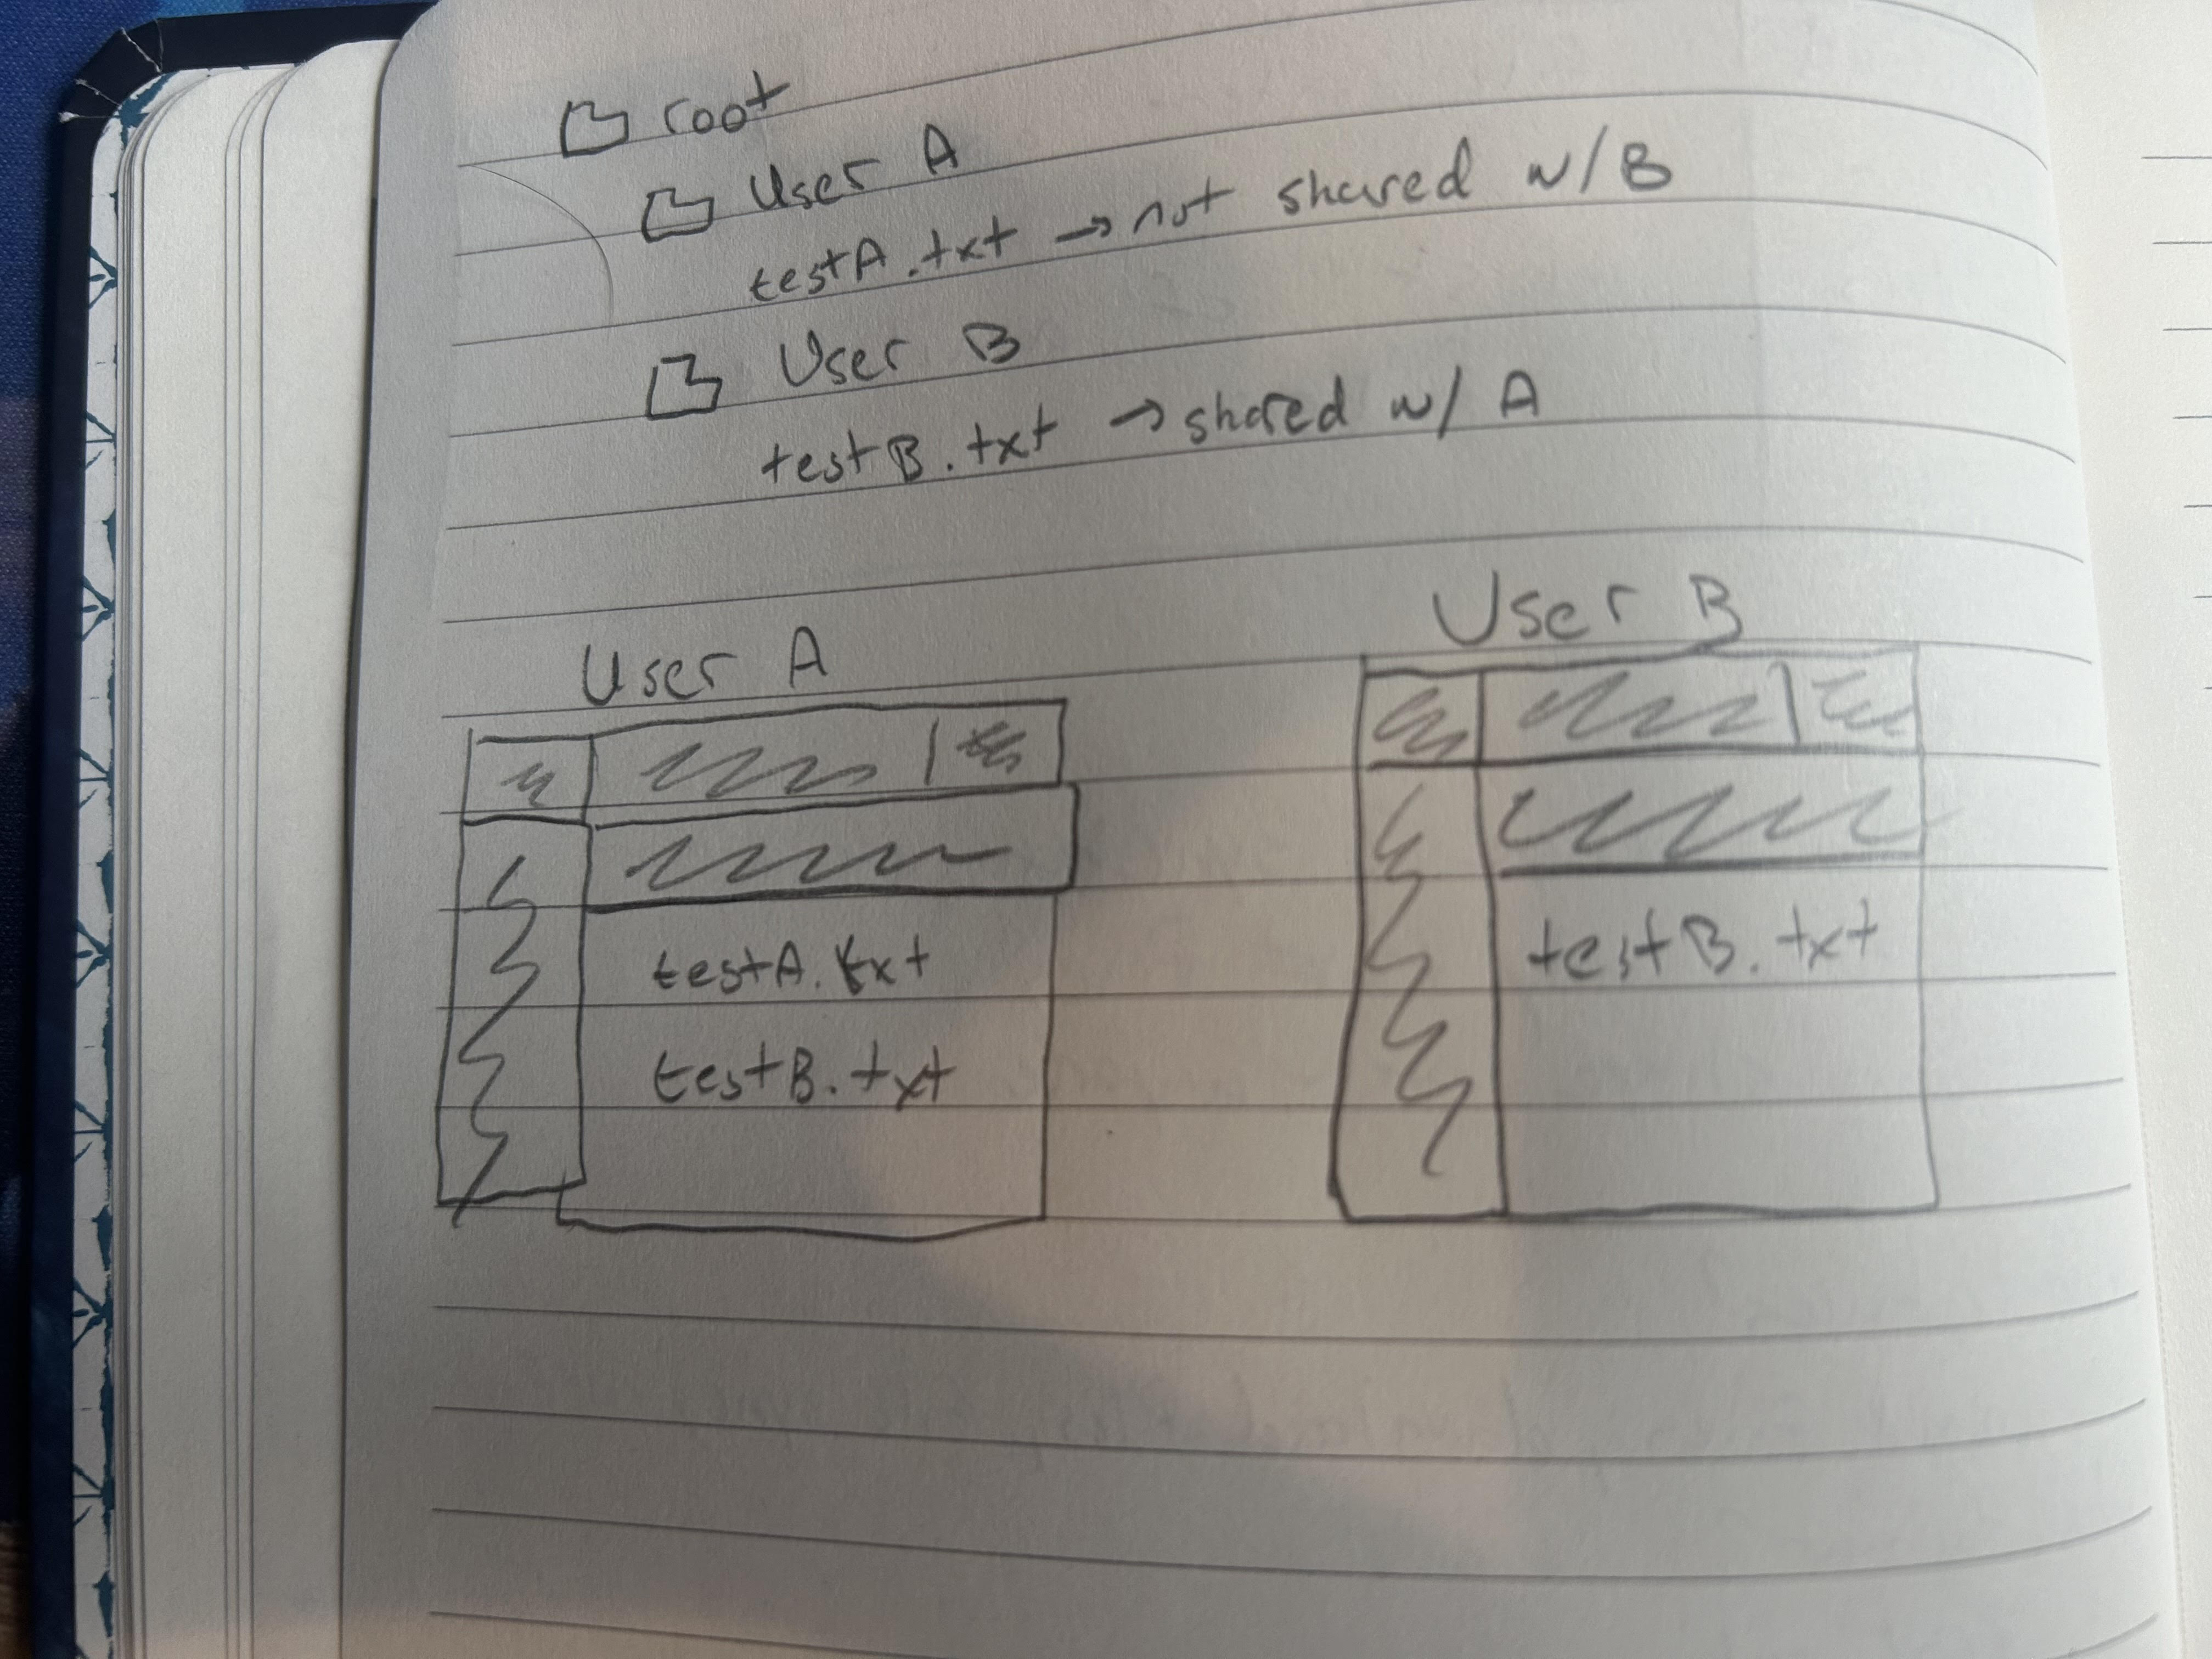 root
User A
testA.txt → not shared w/B
User B
testB.txt → shared w/ A
User A
testA.txt
testB.txt
User B
testB.txt